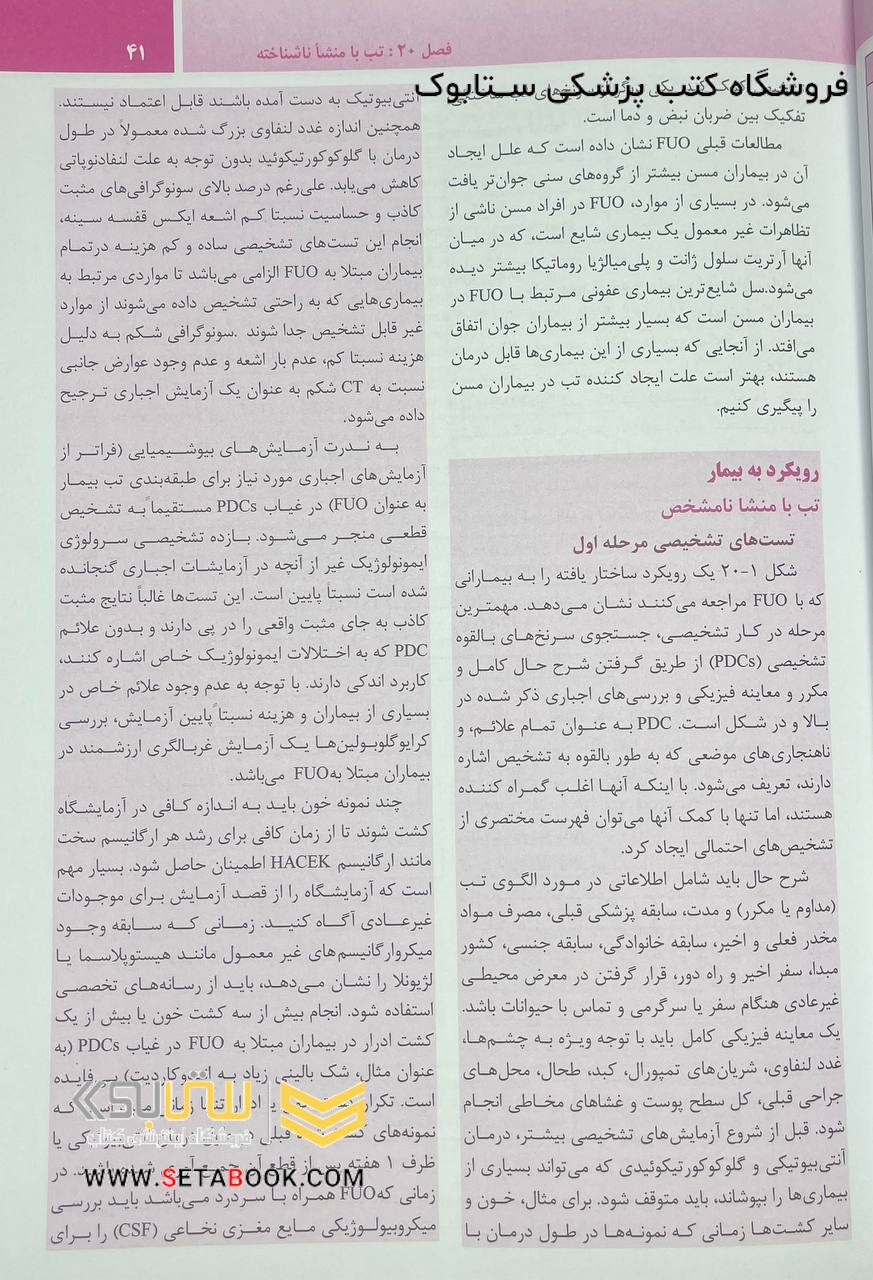 فصل ۲۰: تب با منشأ ناشناخته
۴۱
فروشگاه کتب پزشکی ستابوک
تفکیک بین ضربان نبض و دما است.
مطالعات قبلی FUO نشان داده است که علل ایجاد
آن در بیماران مسن بیشتر از گروه‌های سنی جوان‌تر یافت
می‌شود. در بسیاری از موارد، FUO در افراد مسن ناشی از
تظاهرات غیر معمول یک بیماری شایع است، که در میان
آنها آرتریت سلول ژانت و پلی‌میالژیا روماتیکا بیشتر دیده
می‌شود.سل شایع‌ترین بیماری عفونی مرتبط با FUO در
بیماران مسن است که بسیار بیشتر از بیماران جوان اتفاق
می‌افتد. از آنجایی که بسیاری از این بیماری‌ها قابل درمان
هستند، بهتر است علت ایجاد کننده تب در بیماران مسن
را پیگیری کنیم.
رویکرد به بیمار
تب با منشا نامشخص
تست‌های تشخیصی مرحله اول
شکل ۱-۲۰ یک رویکرد ساختار یافته را به بیمارانی
که با FUO مراجعه می‌کنند نشان می‌دهد. مهمترین
مرحله در کار تشخیصی، جستجوی سرنخ‌های بالقوه
تشخیصی (PDCs) از طریق گرفتن شرح حال کامل و
مکرر و معاینه فیزیکی و بررسی‌های اجباری ذکر شده در
بالا و در شکل است. PDC به عنوان تمام علائم، و
ناهنجاری‌های موضعی که به طور بالقوه به تشخیص اشاره
دارند، تعریف می‌شود. با اینکه آنها اغلب گمراه کننده
هستند، اما تنها با کمک آنها می‌توان فهرست مختصری از
تشخیص‌های احتمالی ایجاد کرد.
شرح حال باید شامل اطلاعاتی در مورد الگوی تب
(مداوم یا مکرر) و مدت، سابقه پزشکی قبلی، مصرف مواد
مخدر فعلی و اخیر، سابقه خانوادگی، سابقه جنسی، کشور
مبدا، سفر اخیر و راه دور، قرار گرفتن در معرض محیطی
غیرعادی هنگام سفر یا سرگرمی و تماس با حیوانات باشد.
یک معاینه فیزیکی کامل باید با توجه ویژه به چشم‌ها،
غدد لنفاوی، شریان‌های تمپورال، کبد، طحال، محل‌های
جراحی قبلی، کل سطح پوست و غشاهای مخاطی انجام
شود. قبل از شروع آزمایش‌های تشخیصی بیشتر، درمان
آنتی‌بیوتیکی و گلوکوکورتیکوئیدی که می‌تواند بسیاری از
بیماری‌ها را بپوشاند، باید متوقف شود. برای مثال، خون و
سایر کشت‌ها زمانی که نمونه‌ها در طول درمان با
آنتی‌بیوتیک به دست آمده باشند قابل اعتماد نیستند.
همچنین اندازه غدد لنفاوی بزرگ شده معمولاً در طول
درمان با گلوکوکورتیکوئید بدون توجه به علت لنفادنوپاتی
کاهش می‌یابد. علی‌رغم درصد بالای سونوگرافی‌های مثبت
کاذب و حساسیت نسبتا کم اشعه ایکس قفسه سینه،
انجام این تست‌های تشخیصی ساده و کم هزینه درتمام
بیماران مبتلا به FUO الزامی می‌باشد تا مواردی مرتبط به
بیماری‌هایی که به راحتی تشخیص داده می‌شوند از موارد
غیر قابل تشخیص جدا شوند .سونوگرافی شکم به دلیل
هزینه نسبتا کم، عدم بار اشعه و عدم وجود عوارض جانبی
نسبت به CT شکم به عنوان یک آزمایش اجباری ترجیح
داده می‌شود.
به ندرت آزمایش‌های بیوشیمیایی (فراتر از
آزمایش‌های اجباری مورد نیاز برای طبقه‌بندی تب بیمار
به عنوان FUO) در غیاب PDCs مستقیماً به تشخیص
قطعی منجر می‌شود. بازده تشخیصی سرولوژی
ایمونولوژیک غیر از آنچه در آزمایشات اجباری گنجانده
شده است نسبتاً پایین است. این تست‌ها غالباً نتایج مثبت
کاذب به جای مثبت واقعی را در پی دارند و بدون علائم
PDC که به اختلالات ایمونولوژیک خاص اشاره کنند،
کاربرد اندکی دارند. با توجه به عدم وجود علائم خاص در
بسیاری از بیماران و هزینه نسبتاً پایین آزمایش، بررسی
کرایوگلوبولین‌ها یک آزمایش غربالگری ارزشمند در
بیماران مبتلا بهFUO می‌باشد.
چند نمونه خون باید به اندازه کافی در آزمایشگاه
کشت شوند تا از زمان کافی برای رشد هر ارگانیسم سخت
مانند ارگانیسم HACEK اطمینان حاصل شود. بسیار مهم
است که آزمایشگاه را از قصد آزمایش برای موجودات
غیرعادی آگاه کنید. زمانی که سابقه وجود
میکروارگانیسم‌های غیر معمول مانند هیستوپلاسما یا
لژیونلا را نشان می‌دهد، باید از رسانه‌های تخصصی
استفاده شود. انجام بیش از سه کشت خون یا بیش از یک
کشت ادرار در بیماران مبتلا به FUO در غیاب PDCs (به
عنوان مثال، شک بالینی زیاد به اندوکاردیت) بی فایده
است. تکرار یا ادرار تنها زمانی که
نمونه‌های قبلی یا
ظرف ۱ هفته پس از قطع آن در
زمانی کهFUO همراه با سردرد می‌باشد باید بررسی
میکروبیولوژیکی مایع مغزی نخاعی (CSF) را برای
ستابوک
فروشگاه اینترنتی کتاب
WWW.SETABOOK.COM